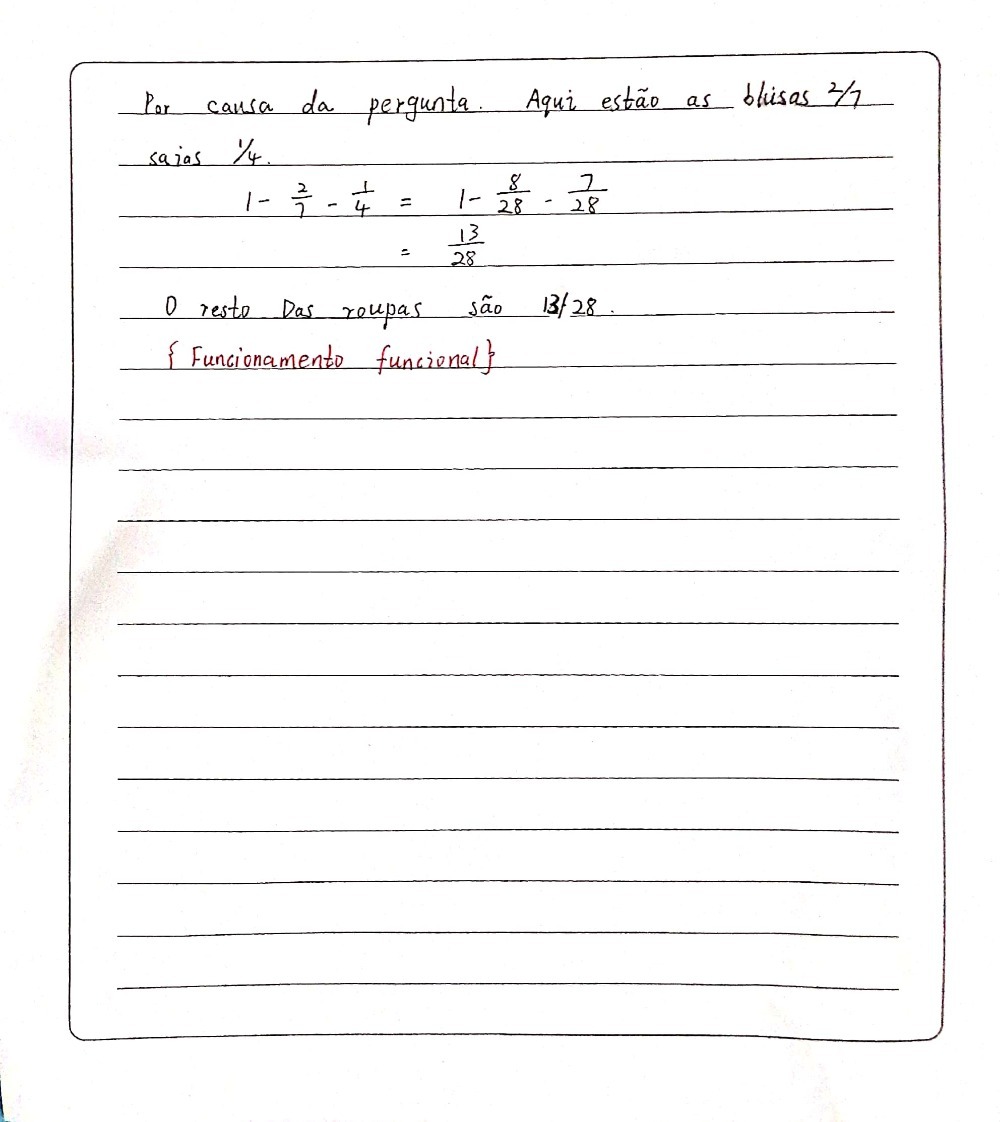 Por causa da pergunta. Aqui estão as blusas 2/7
saias 1/4.
1 - 2/7 - 1/4 = 1 - 8/28 - 7/28
= 13/28
O resto Das roupas são 13/28.
{Funcionamento funcional}